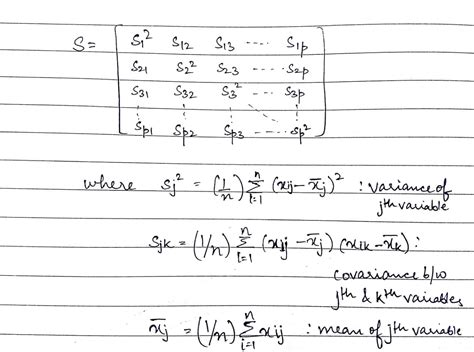 S = [ S₁² S₁₂ S₁₃ ---- S₁p
S₂₁ S₂² S₂₃ ---- S₂p
S₃₁ S₃₂ S₃² ---- S₃p
Sp₁ Sp₂ Sp₃ ---- Sp² ]
where Sj² = (1/n) Σⁿᵢ₌₁ (xij – x̄j)² : variance of
jth variable
Sjk = (1/n) Σⁿᵢ₌₁ (xij – x̄j) (xik – x̄k) :
covariance b/w
jth & kth variables
x̄j = (1/n) Σⁿᵢ₌₁ xij : mean of jth variable